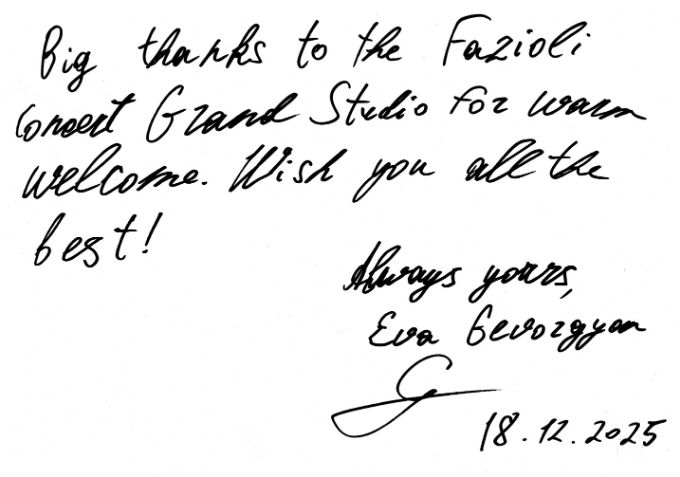 Big thanks to the Fazioli
Concert Grand Studio for warm
welcome. Wish you all the
best!
Always yours,
Eva Gevorgyan
18.12.2025